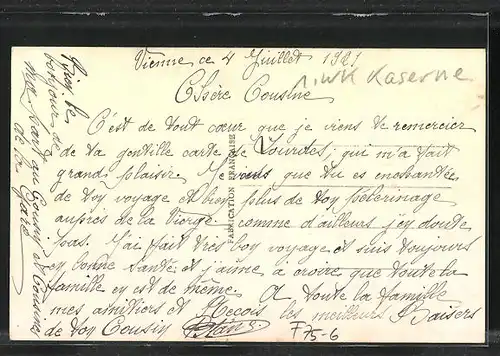 Vienne ce 4 Juillet 1921
1. WK Kaserne
Chère Cousine
C'est de tout cœur que je viens te remercier
de ta gentille carte de Lourdes, qui m'a fait
grand plaisir. Je vois que tu es enchantée
de toy voyage et bien plus de toy pélerinage
aupres de la Vierge. comme d'ailleurs j'ey doute
pas. J'ai fait très boy voyage et suis toujours
ey bonne santé et j'aime a croire que toute la
famille ey est de même. A toute la famille
mes amitiers et Reçois les meilleurs Baisers
de toy Cousiy
F75-6
FABRICATION FRANÇAISE
bonjour de
ma part au Cousiy et Cousines
de la Gare